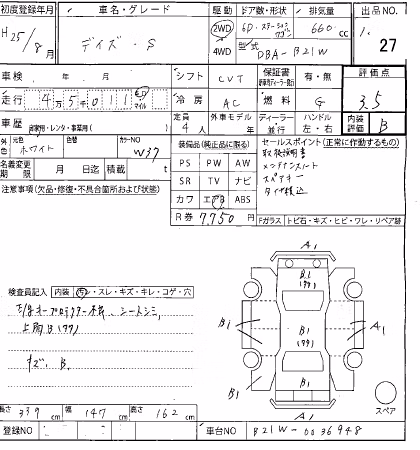 初度登録年月 車名・グレード 駆動 ドア数・形状 排気量 出品No.
H25/8月 デイズ・S 2WD 4WD 5D・ステーションワゴン 660cc 1. 27
型式 DBA-B21W
車検 年 月 シフト CVT 保証書 有・無 評価点
走行 4万5千011 km マイル 冷房 AC 燃料 G 3.5
車歴 自家用・レンタ・事業用( ) 定員 4人 外車モデル 年 ディーラー 並行 ハンドル 左・右 内装評価 B
外色 元色 ホワイト 色替 カラーNO W37 装備品(純正品に限る) セールスポイント(正常に作動するもの)
名義変更期限 月 日迄 積載 t PS PW AW 取扱説明書
注意事項(欠品・修復・不具合箇所および状態) SR TV ナビ メンテナンスノート
カワ エアB ABS スペアキー
R券 7,750円
Fガラス トビ石・キズ・ヒビ・ワレ・リペア跡
A1
B1
(99)
検査員記入 内装 ・スレ・キズ・キレ・コゲ・穴
シートシミ
B1 B1 (99) A1
上周B(99)
キズ、B、
B1
長さ 339cm 幅 147cm 高さ 162cm A1 スペア
登録NO 車台NO B21W-0036948